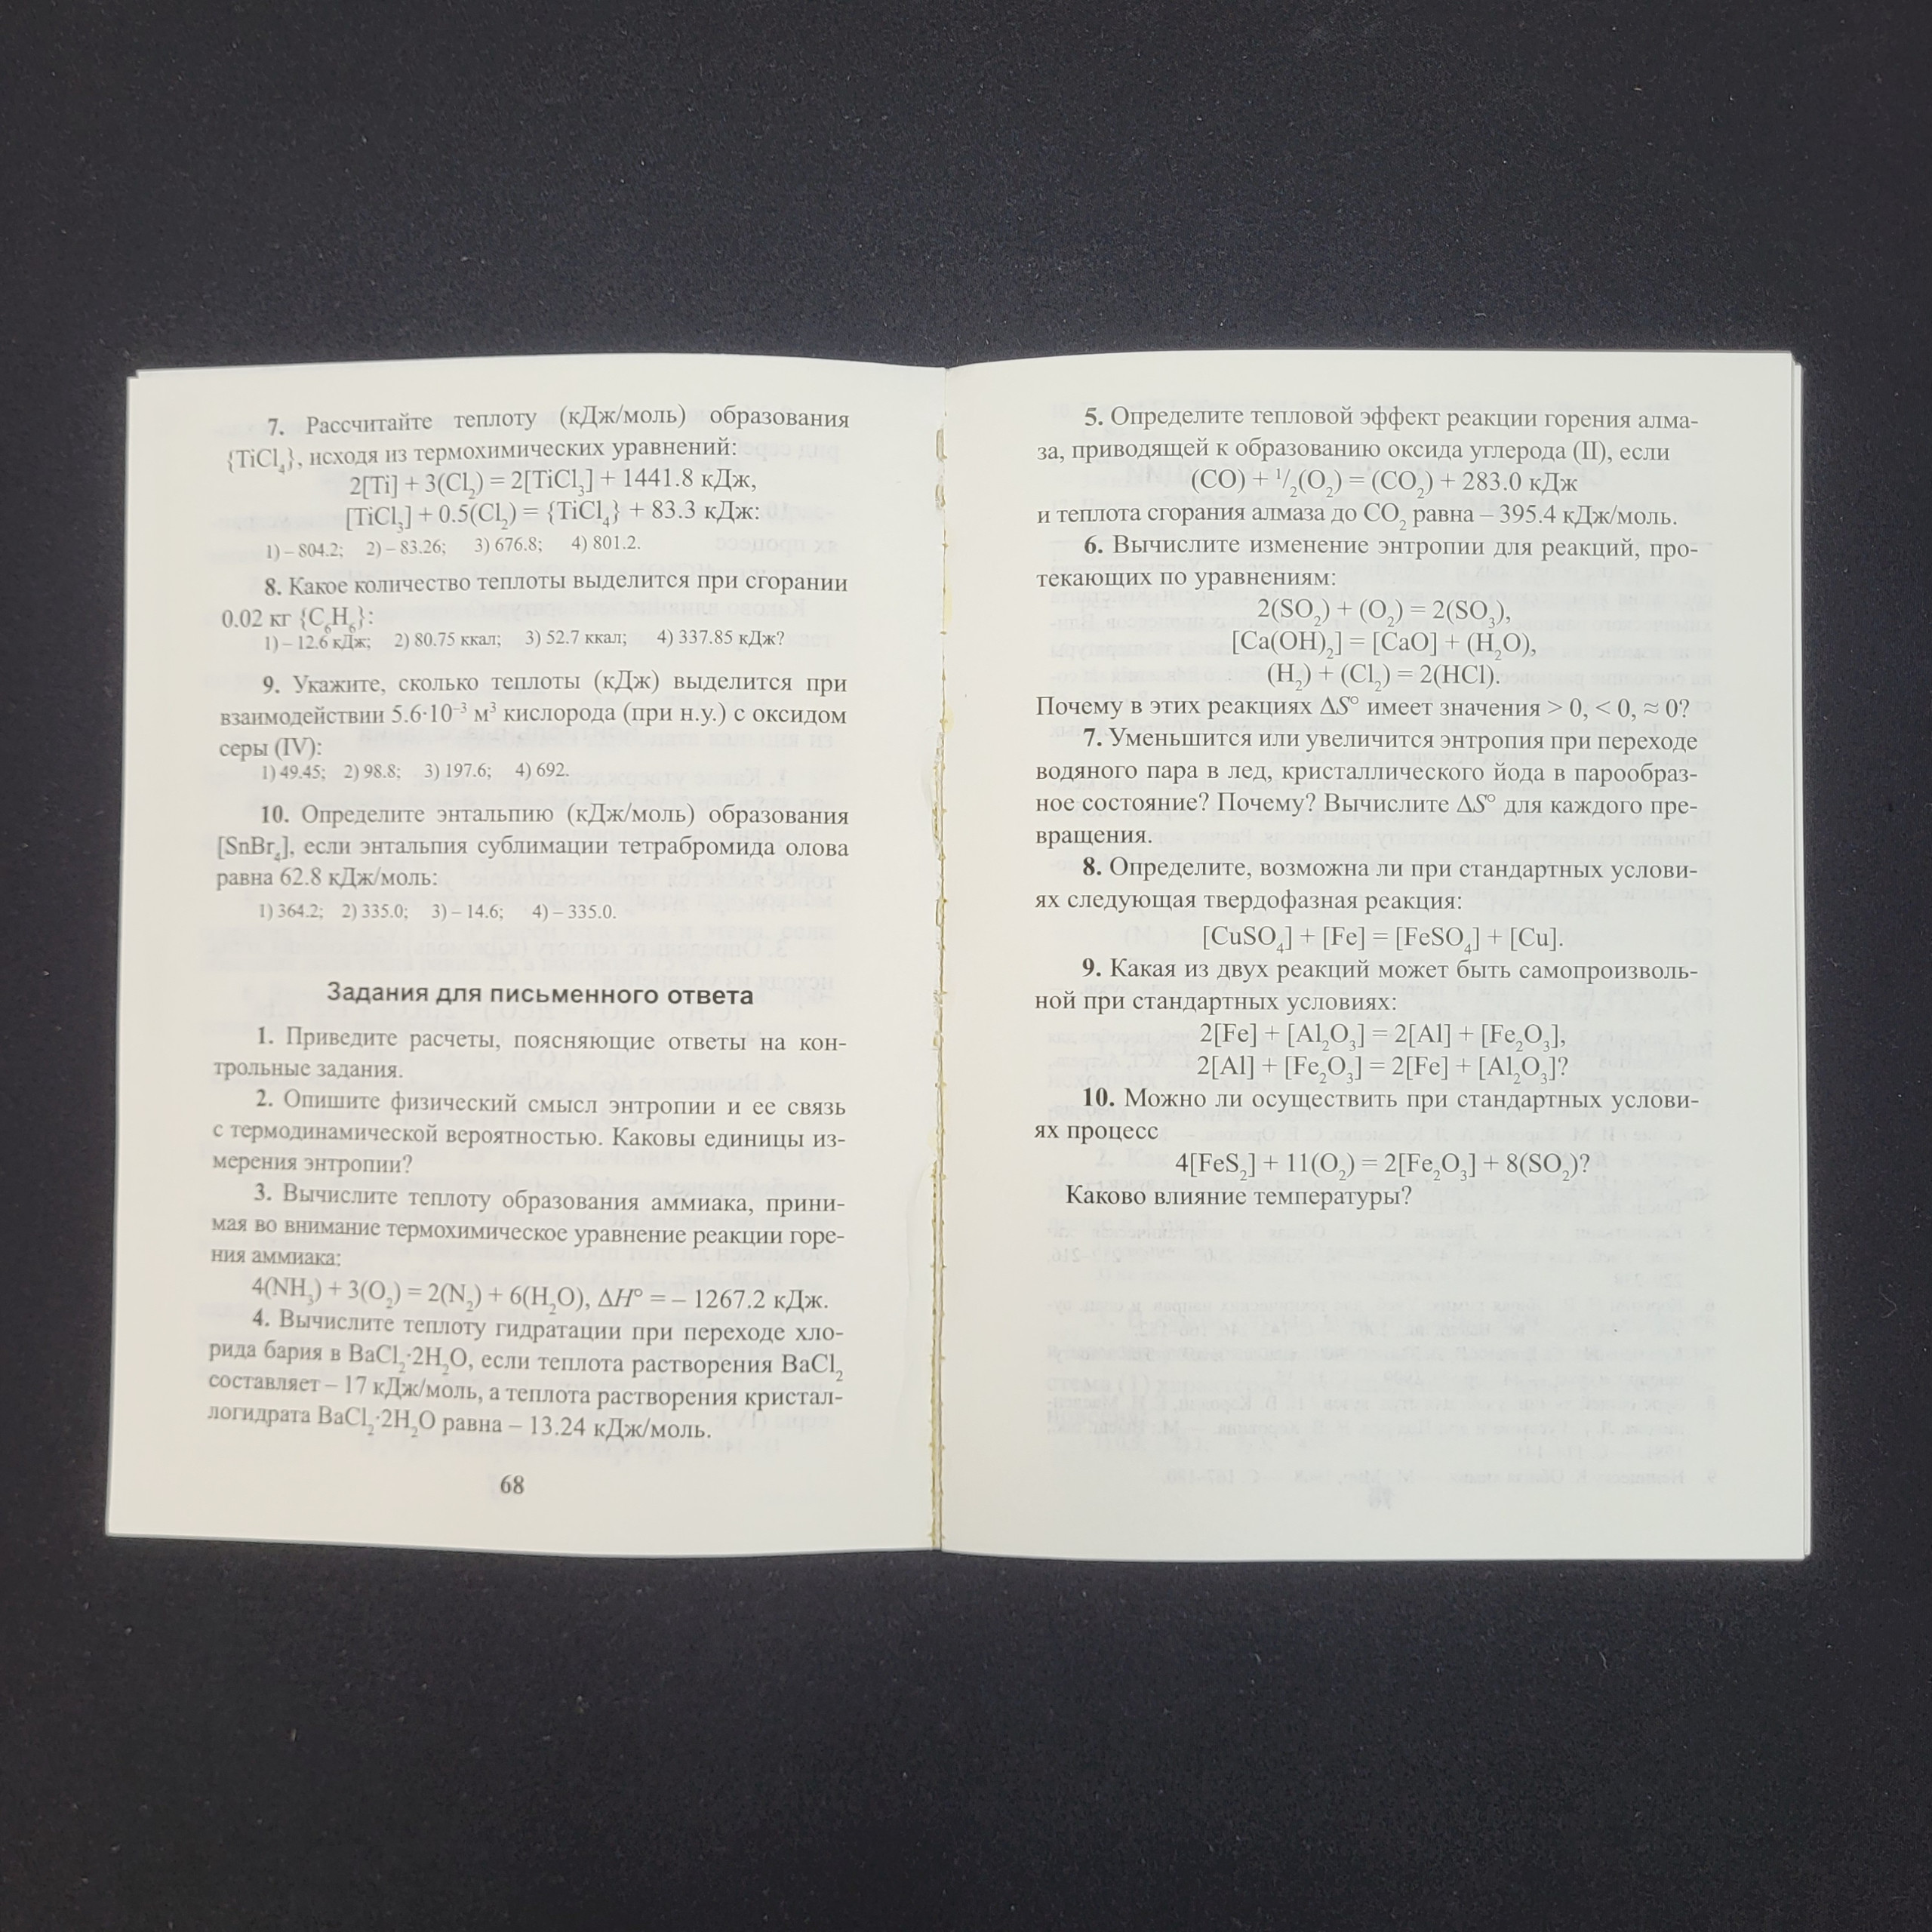 7. Рассчитайте теплоту (кДж/моль) образования
{TiCl₄}, исходя из термохимических уравнений:
2[Ti] + 3(Cl₂) = 2[TiCl₃] + 1441.8 кДж,
[TiCl₃] + 0.5(Cl₂) = {TiCl₄} + 83.3 кДж:
1) – 804.2; 2) – 83.26; 3) 676.8; 4) 801.2.
8. Какое количество теплоты выделится при сгорании
0.02 кг {C₆H₆}:
1) – 12.6 кДж; 2) 80.75 ккал; 3) 52.7 ккал; 4) 337.85 кДж?
9. Укажите, сколько теплоты (кДж) выделится при
взаимодействии 5.6·10⁻³ м³ кислорода (при н.у.) с оксидом
серы (IV):
1) 49.45; 2) 98.8; 3) 197.6; 4) 692.
10. Определите энтальпию (кДж/моль) образования
[SnBr₄], если энтальпия сублимации тетрабромида олова
равна 62.8 кДж/моль:
1) 364.2; 2) 335.0; 3) – 14.6; 4) – 335.0.
Задания для письменного ответа
1. Приведите расчеты, поясняющие ответы на кон-
трольные задания.
2. Опишите физический смысл энтропии и ее связь
с термодинамической вероятностью. Каковы единицы из-
мерения энтропии?
3. Вычислите теплоту образования аммиака, прини-
мая во внимание термохимическое уравнение реакции горе-
ния аммиака:
4(NH₃) + 3(O₂) = 2(N₂) + 6(H₂O), ΔH° = – 1267.2 кДж.
4. Вычислите теплоту гидратации при переходе хло-
рида бария в BaCl₂·2H₂O, если теплота растворения BaCl₂
составляет – 17 кДж/моль, а теплота растворения кристал-
логидрата BaCl₂·2H₂O равна – 13.24 кДж/моль.
68
5. Определите тепловой эффект реакции горения алма-
за, приводящей к образованию оксида углерода (II), если
(CO) + ¹/₂(O₂) = (CO₂) + 283.0 кДж
и теплота сгорания алмаза до CO₂ равна – 395.4 кДж/моль.
6. Вычислите изменение энтропии для реакций, про-
текающих по уравнениям:
2(SO₂) + (O₂) = 2(SO₃),
[Ca(OH)₂] = [CaO] + (H₂O),
(H₂) + (Cl₂) = 2(HCl).
Почему в этих реакциях ΔS° имеет значения > 0, < 0, ≈ 0?
7. Уменьшится или увеличится энтропия при переходе
водяного пара в лед, кристаллического йода в парообраз-
ное состояние? Почему? Вычислите ΔS° для каждого пре-
вращения.
8. Определите, возможна ли при стандартных услови-
ях следующая твердофазная реакция:
[CuSO₄] + [Fe] = [FeSO₄] + [Cu].
9. Какая из двух реакций может быть самопроизволь-
ной при стандартных условиях:
2[Fe] + [Al₂O₃] = 2[Al] + [Fe₂O₃],
2[Al] + [Fe₂O₃] = 2[Fe] + [Al₂O₃]?
10. Можно ли осуществить при стандартных услови-
ях процесс
4[FeS₂] + 11(O₂) = 2[Fe₂O₃] + 8(SO₂)?
Каково влияние температуры?